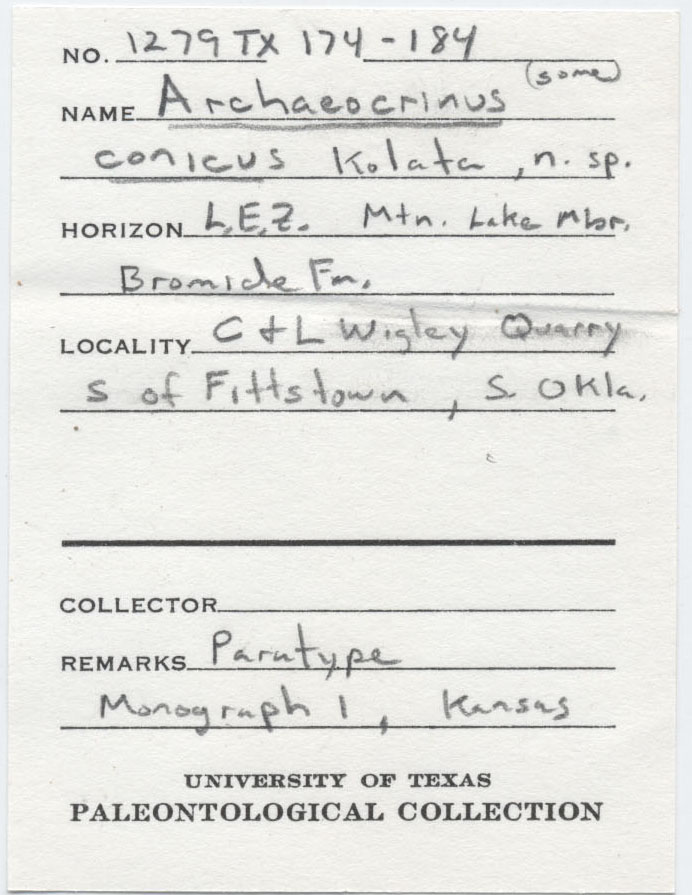 NO. 1279 TX 174-184
(some)
NAME Archaeocrinus
conicus Kolata, n. sp.
HORIZON L.E.Z. Mtn. Lake Mbr.
Bromide Fm.
LOCALITY C & L Wigley Quarry
S of Fittstown, S. Okla.
COLLECTOR
REMARKS Paratype
Monograph 1, Kansas
UNIVERSITY OF TEXAS
PALEONTOLOGICAL COLLECTION